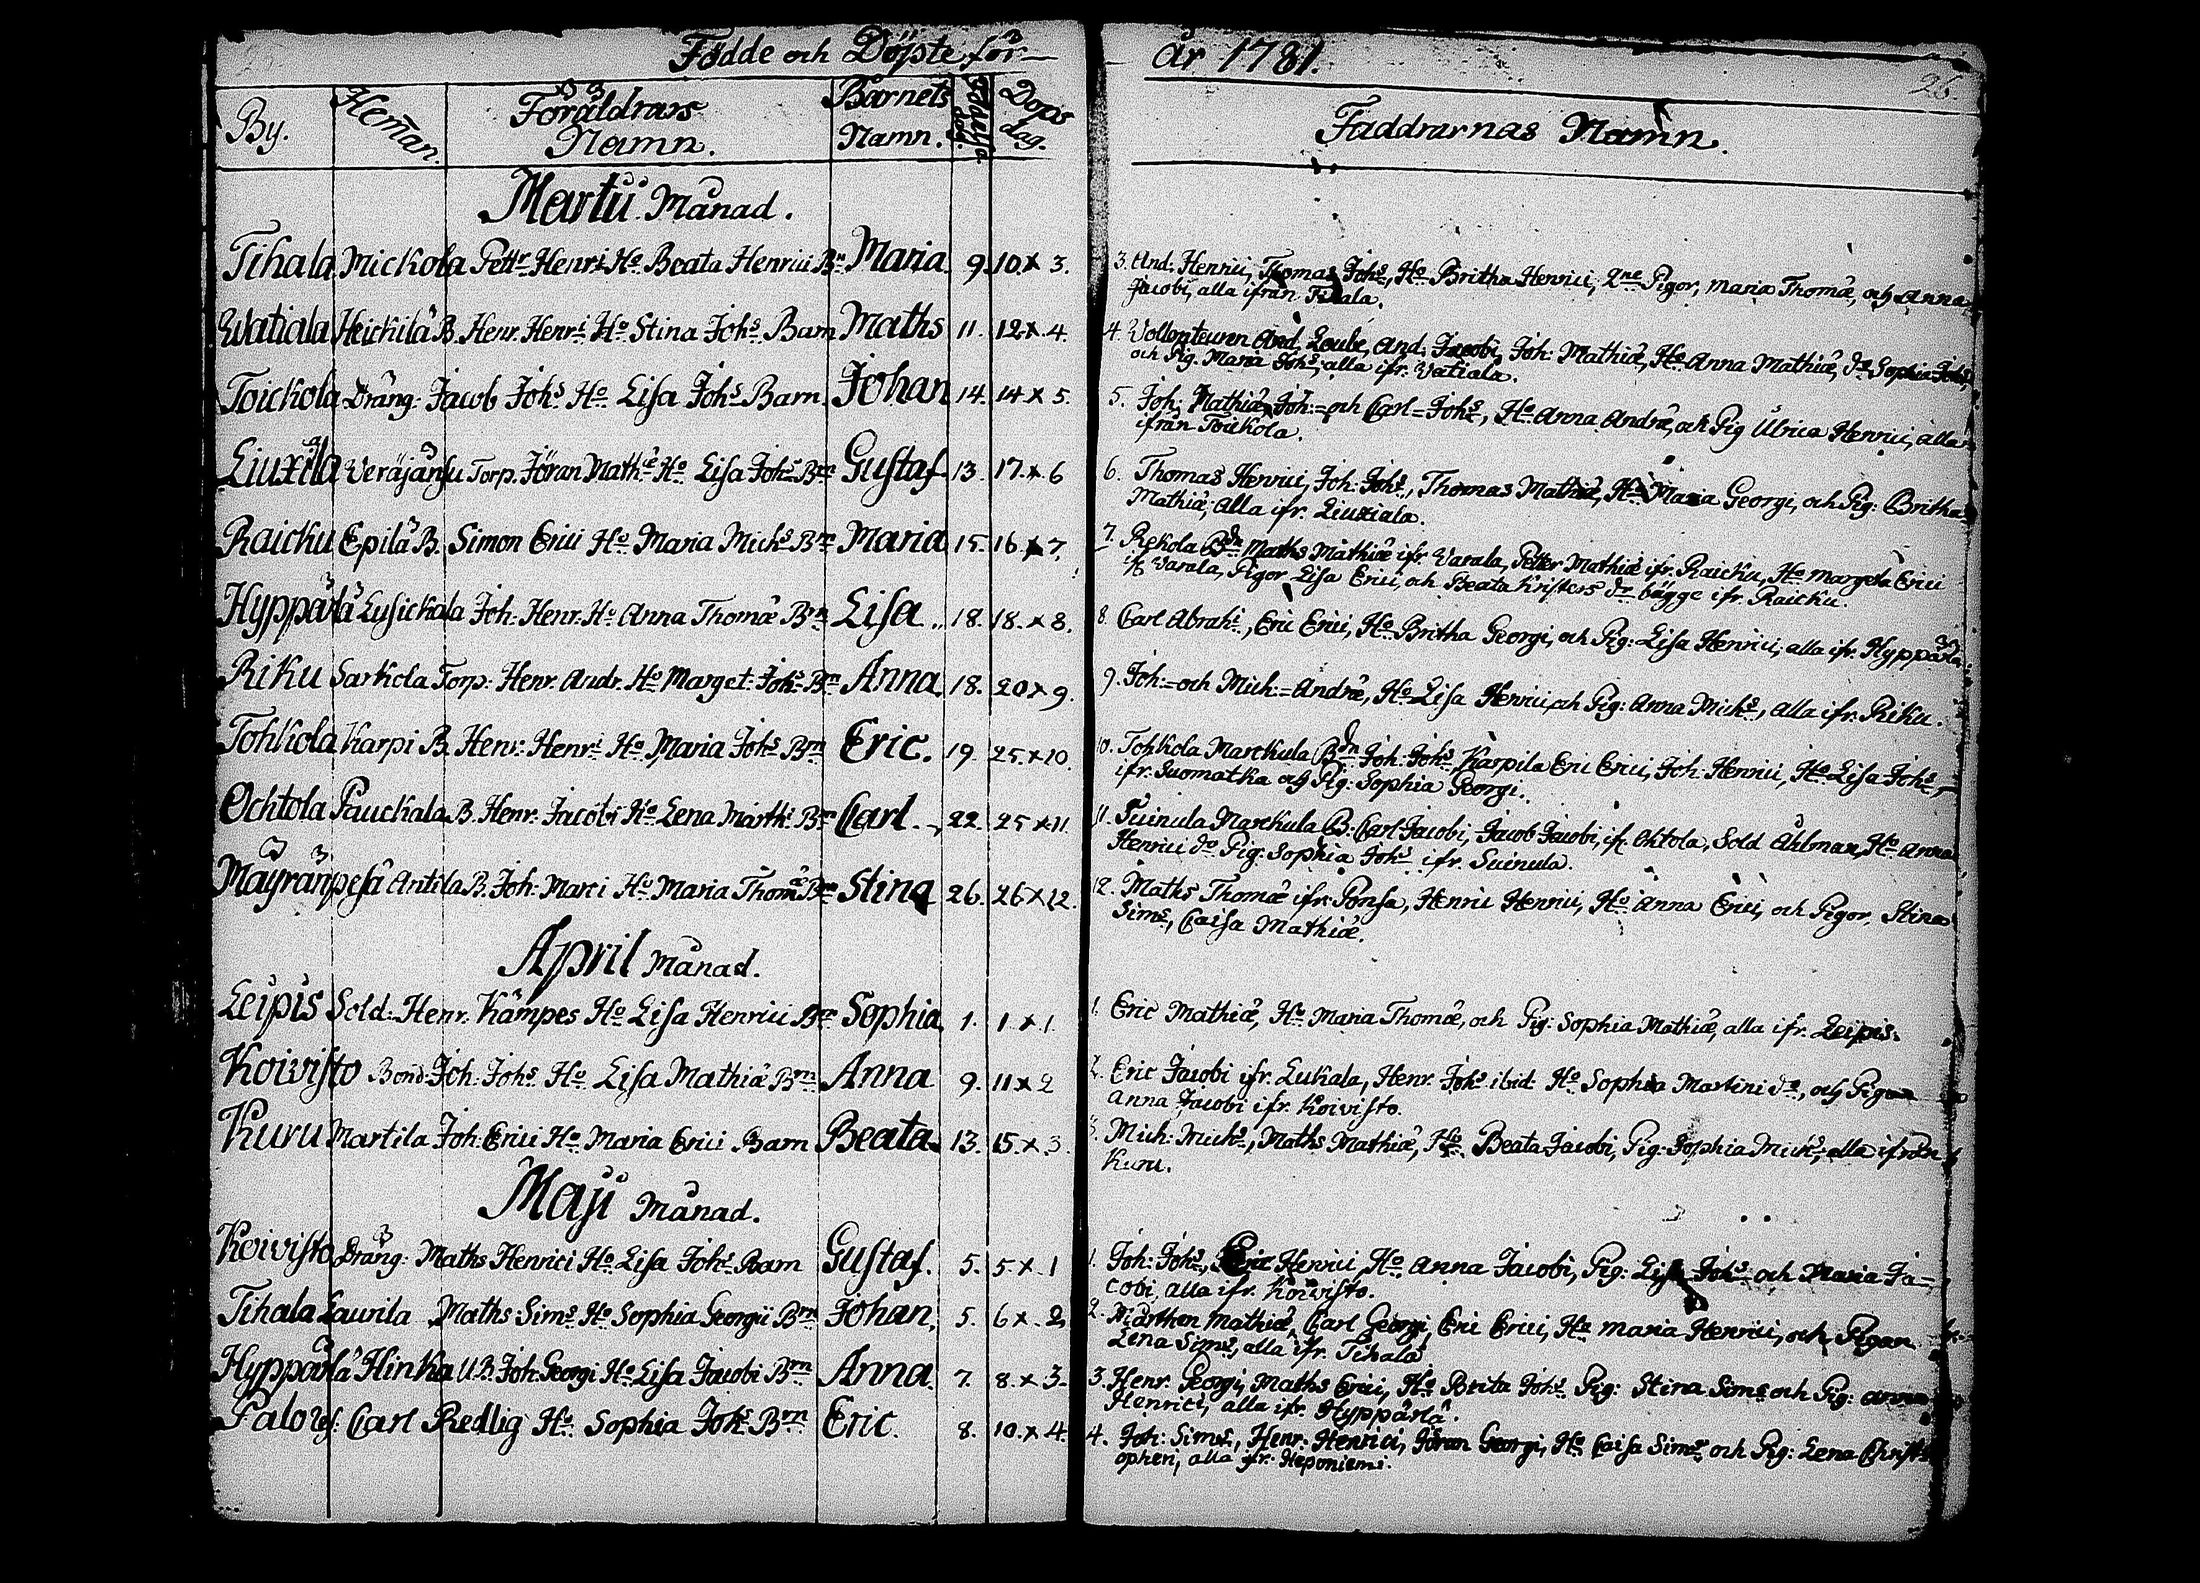 Födde och Döpte för
By.
Heman.
Föräldrars
Namn.
Barnets
Namn.
Födelse
dag.
Dops
dag.
Martii Månad.
Tihala Mickola Pettr Henri Ho Beata Henrici Bn Maria 9. 10. x 3.
Watiala Heickilä B. Henr. Henri Ho Stina Johs Barn Maths 11. 12 x 4.
Toickola Dräng: Jacob Johs Ho Lisa Johs Barn. Johan 14. 14 x 5.
Liuxila Weräjänsu Torp. Jöran Mathe Ho Lisa Johs Brn Gustaf 13. 17. x 6
Raicku Epilä B. Simon Erici Ho Maria Michs Brn Maria 15. 16 x 7.
Hyppärlä Lusickala Joh: Henr. Ho Anna Thomæ Brn Lisa 18. 18. x 8.
Riku Sarkola Torp: Henr. Andr. Ho Marget: Johs Brn Anna 18. 20 x 9.
Tohkola Karpi B. Henr: Henri Ho Maria Johs Brn Eric. 19. 25. x 10.
Ochtola Pauckala B. Henr. Jacobi Ho Lena Marthi Brn Carl 22. 25 x 11.
Mäyränpesä Antila B. Joh: Marci Ho Maria Thomæ Brn Stina 26. 26 x 12.
April Månad.
Leipis Sold: Henr. Kämpes Ho Lisa Henrici Brn Sophia 1. 1 x 1.
Koivisto Bond. Joh: Johs Ho Lisa Mathiæ Brn Anna 9. 11 x 2
Kuru Martila Joh: Erici Ho Maria Erici Barn Beata 13. 15. x 3.
Maji Månad.
Koivisto Dräng: Maths Henrici Ho Lisa Johs Barn Gustaf. 5. 5 x 1
Tihala Laurila Maths Sims Ho Sophia Georgii Brn Johan, 5. 6 x 2
Hyppärlä Hinka U.B. Joh: Georgi Ho Lisa Jacobi Brn Anna. 7. 8. x 3.
Palo Carl Redlig Ho Sophia Johs Brn Eric. 8. 10. x 4.
år 1781.
26.
Faddrarnas Namn.
3. And: Henrici, Thomas Johs, Ho Britha Henrici, 2ne Pigor, Maria Thomæ, och Anna
Jacobi, alla ifrån Tihala.
4. And. Leube, And: Jacobi, Joh: Mathiæ, Ho Anna Mathiæ, do Sophia Johs
och Pig. Maria Johs, alla ifr. Vatiala.
5. Joh: Mathiæ, Joh:= och Carl= Johs, Ho Anna Andræ, och Pig Ulrica Henrici, alla
ifrån Toickola.
6. Thomas Henrici, Joh: Johs, Thomas Mathiæ, Ho Maria Georgi, och Pig: Britha
Mathiæ, alla ifr. Liuxiala.
7. Rekola Bdn Maths Mathiæ ifr. Varala, Petter Mathiæ ifr. Raicku, Ho Margeta Erici
ifr. Varala, Pigor Lisa Erici, och Beata Kristers dr bägge ifr. Raicku.
8. Carl Abrahi, Eric Erici, Ho Britha Georgi, och Pig: Lisa Henrici, alla ifr. Hyppärlä.
9. Joh:= och Mich:= Andræ, Ho Lisa Henrici, och Pig: Anna Michs, alla ifr. Riku.
10. Tohkola Marckula Bdn Joh: Johs, Karpila Eric Erici, Joh: Henrici, Ho Lisa Johs,
ifr. Suomatka och Pig: Sophia Georgi.
11. Suinula Marckula B: Carl Jacobi, Jacob Jacobi, ifr. Ohtola, Sold Ahlman, Ho Anna
Henrici do Pig: Sophia Johs ifr. Suinula.
12. Maths Thomæ ifr. Ponsa, Henric Henrici, Ho Anna Erici, och Pigor, Stina
Sims, Caisa Mathiæ.
1. Eric Mathiæ, Ho Maria Thomæ, och Pig: Sophia Mathiæ, alla ifr. Leipis.
2. Eric Jacobi ifr. Lukala, Henr. Johs ibid. Ho Sophia Martini do, och Pigan
Anna Jacobi ifr. Koivisto.
3. Mich: Michs, Maths Mathiæ, Ho Beata Jacobi, Pig: Sophia Michs, alla ifrån
Kuru.
1. Joh: Johs, Eric Henrici, Ho Anna Jacobi, Pig: Lisa Johs och Maria Ja-
cobi, alla ifr. Koivisto.
2. Mårthen Mathiæ, Carl Georgi, Eric Erici, Ho Maria Henrici, och Pigan
Lena Sims, alla ifr. Tihala
3. Henr. Georgi, Maths Erici, Ho Brita Johs Pig: Stina Sims och Pig: Anna
Henrici, alla ifr. Hyppärlä.
4. Joh: Sims, Henr: Henrici, Jöran Georgi, Ho Caisa Sims och Pig: Lena Christ
opheri, alla ifr. Heponiemi.